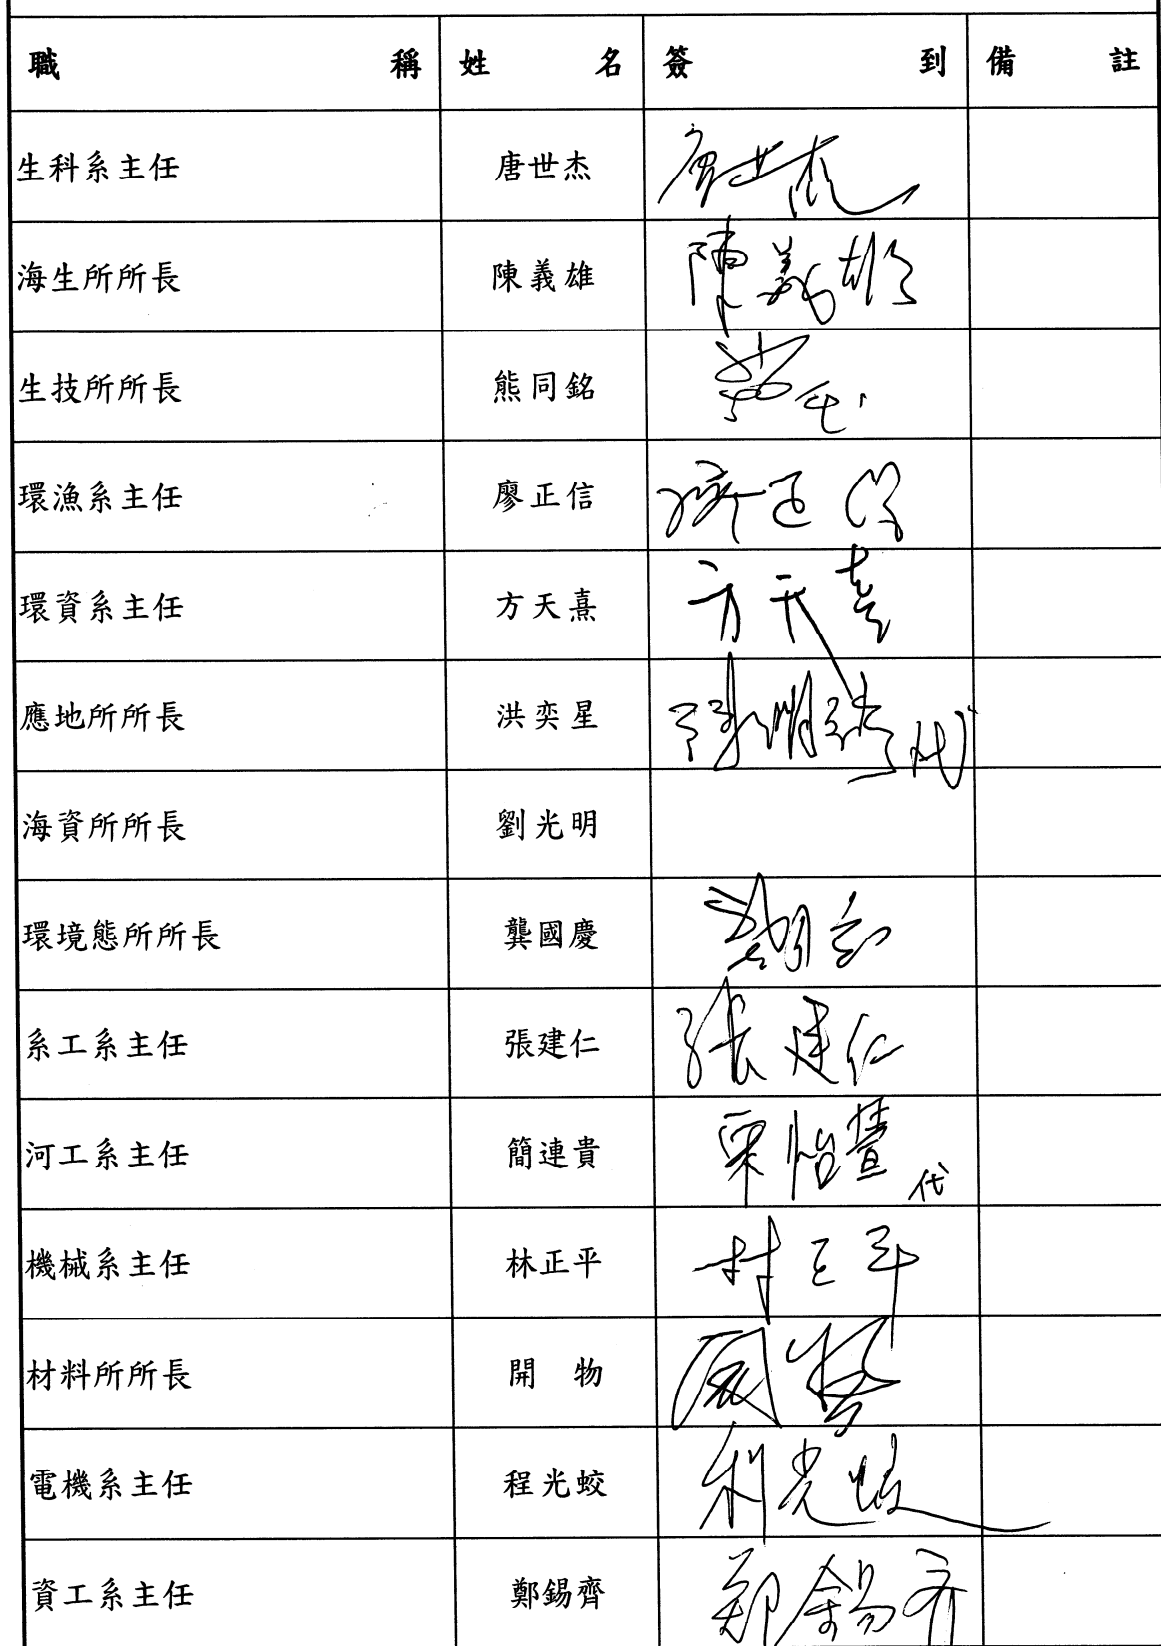 職稱 姓名 簽到 備註
生科系主任 唐世杰 唐世杰
海生所所長 陳義雄 陳義雄
生技所所長 熊同銘
環漁系主任 廖正信 廖正信
環資系主任 方天熹 方天熹
應地所所長 洪奕星 代
海資所所長 劉光明
環境態所所長 龔國慶
系工系主任 張建仁 張建仁
河工系主任 簡連貴 代
機械系主任 林正平 林正平
材料所所長 開物
電機系主任 程光蛟 程光蛟
資工系主任 鄭錫齊 鄭錫齊